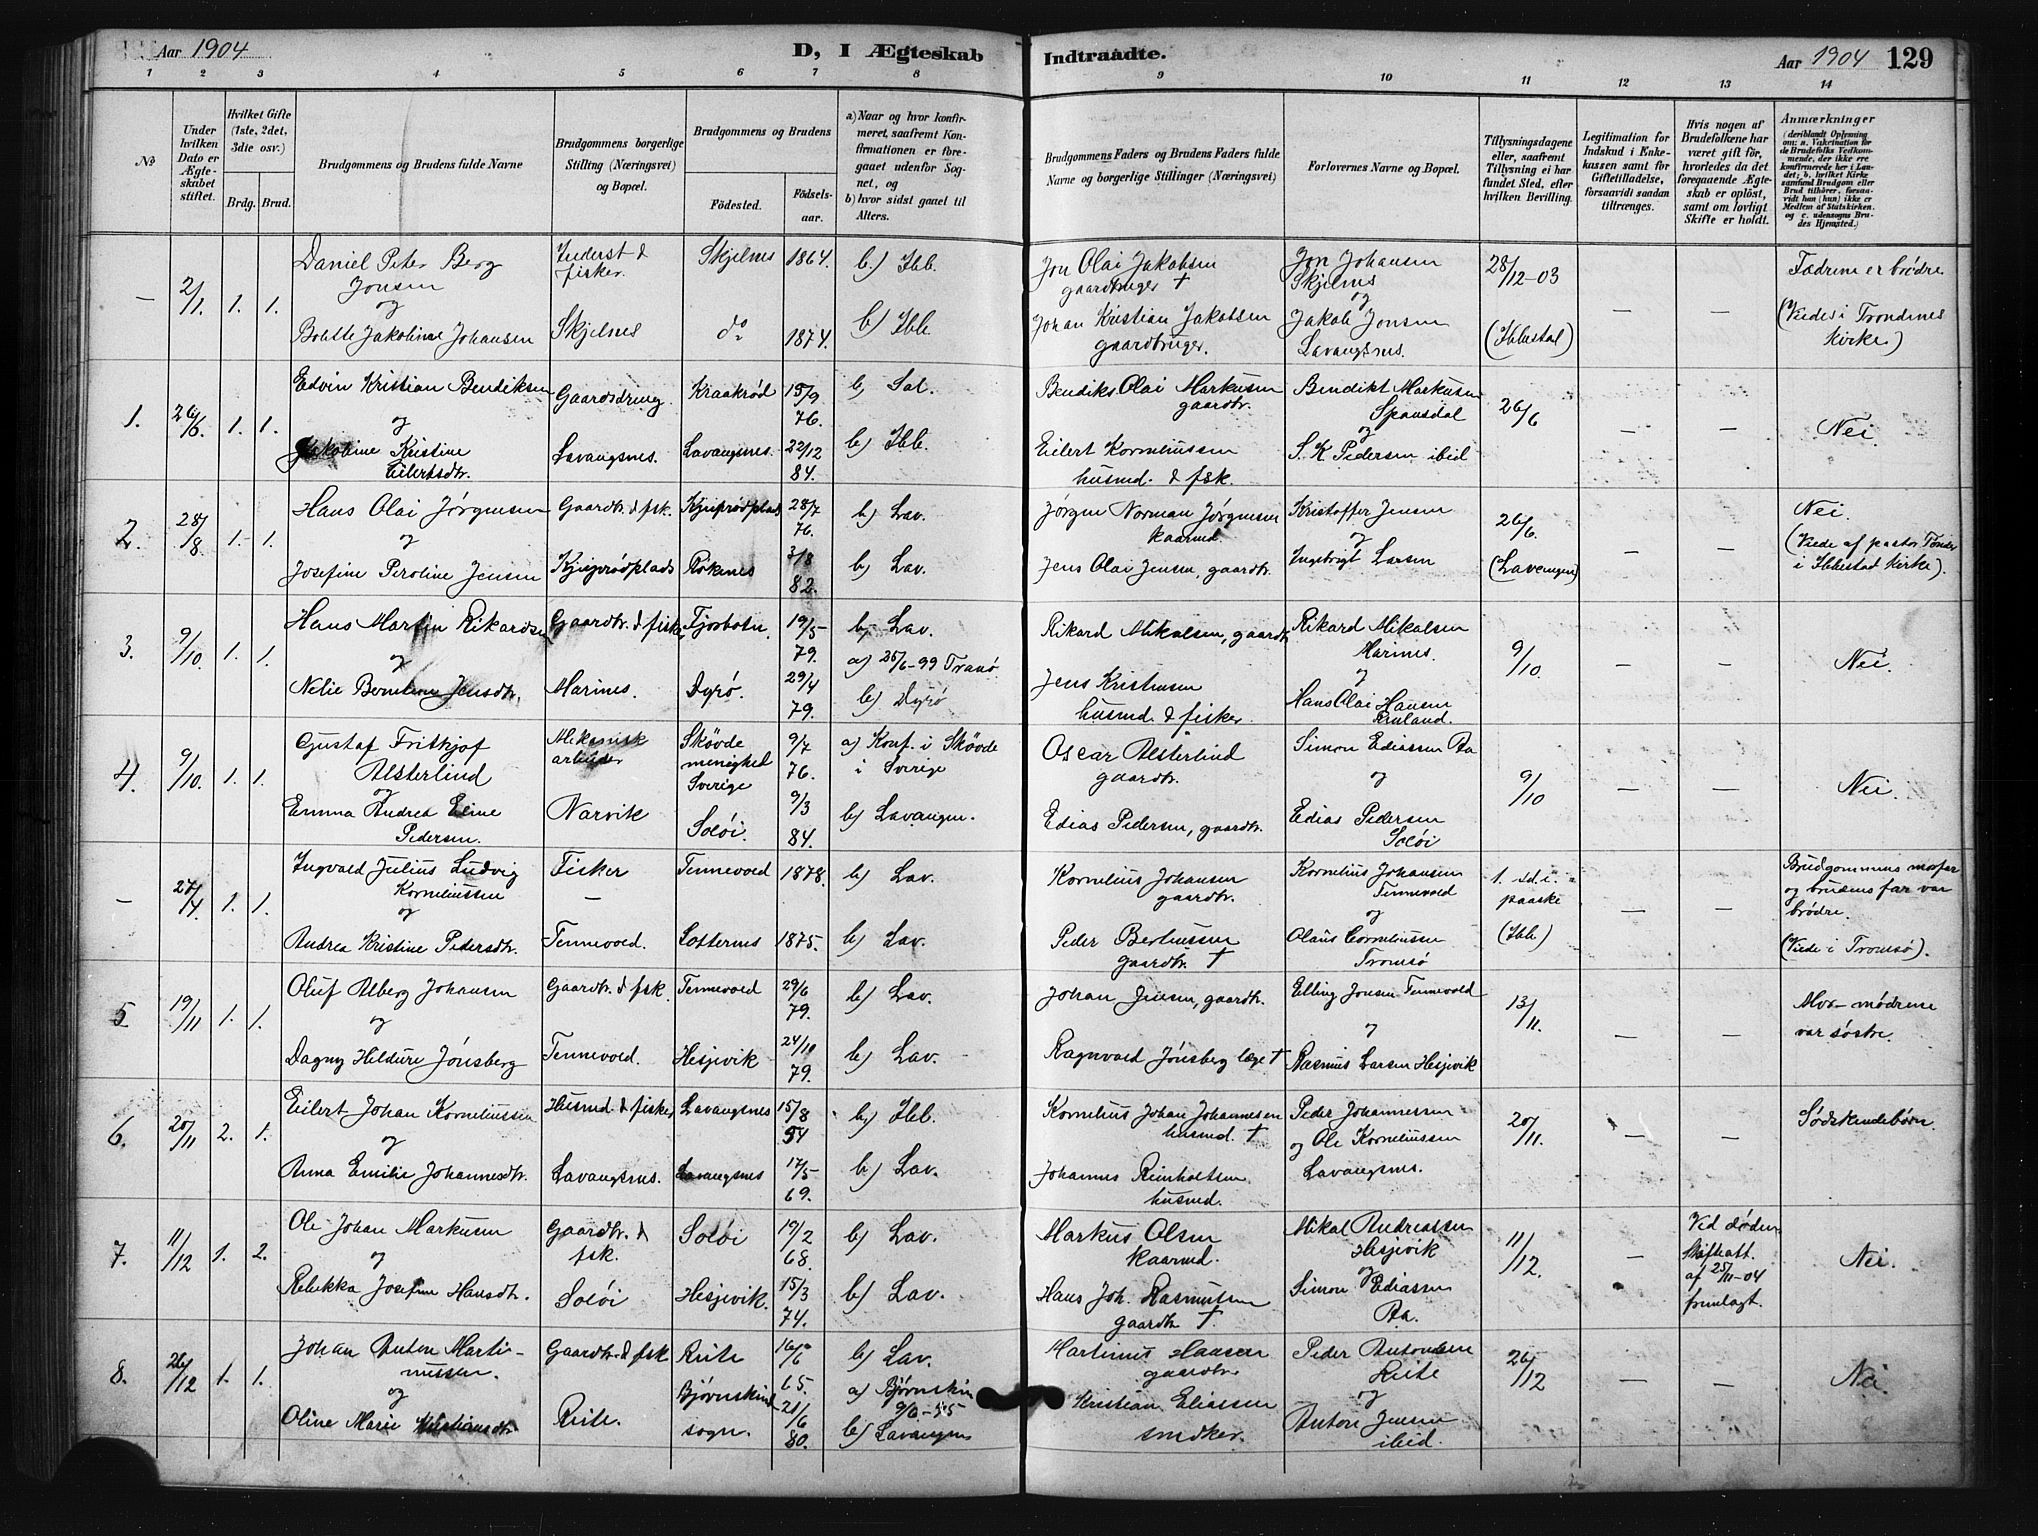 Aar 1904
D, I Ægteskab
Indtraadte.
Aar 1904
129
1 2 3 4 5 6 7 8 9 10 11 12 13 14
No
Under hvilken Dato er Ægteskabet stiftet.
Hvilket Gifte (1ste, 2det, 3die osv.)
Brdg. Brud.
Brudgommens og Brudens fulde Navne
Brudgommens borgerlige Stilling (Næringsvei) og Bopæl.
Brudgommens og Brudens
Fødested.
Fødselsaar.
a) Naar og hvor konfirmeret, saafremt Konfirmationen er foregaaet udenfor Sognet, og
b) hvor sidst gaaet til Alters.
Brudgommens Faders og Brudens Faders fulde Navne og borgerlige Stillinger (Næringsvei)
Forlovernes Navne og Bopæl.
Tillysningsdagene eller, saafremt Tillysning ei har fundet Sted, efter hvilken Bevilling.
Legitimation for Indskud i Enkekassen samt for Giftetilladelse, forsaavidt saadan tiltrænges.
Hvis nogen af Brudefolkene har været gift før, hvorledes da det foregaaende Ægteskab er opløst, samt om lovligt Skifte er holdt.
Anmærkninger
(deriblandt Oplysning om: a. Vakcination for de Brudefolks Vedkommende, der ikke ere konfirmerede her i Landet; b. hvilket Kirkesamfund Brudgom eller Brud tilhører, forsaavidt han (hun) ikke er Medlem af Statskirken. og c. udensogns Brudes Hjemsted.)
– 2/1 1. 1.
Daniel Peter Berg Jonsen
og
Bolette Jakobine Johansen
Inderst & fisker.
Skjelnes
Skjelnes 1864. b.) Ibb.
do 1874. b) Ibb.
Jon Olai Jakobsen gaardbruger †
Johan Kristian Jakobsen gaardbruger.
Jon Johansen Skjelnes
og
Jakob Jonsen Lavangsnes.
28/12-03
(Ibbestad)
– –
Fædrene er brødre
(Viede i Trondenes Kirke)
1. 26/6. 1. 1.
Edvin Kristian Bendiksen
og
Jakobine Kristine Eilertsdtr.
Gaardsdreng
Lavangsnes.
Kraakrød 15/9 76. b) Sal.
Lavangsnes. 22/12 84. b) Ibb.
Bendiks Olai Markusen gaardbr.
Eilert Korneliussen husmd. & fsk.
Bendikt Markusen Spansdal
og
S. K. Pedersen ibid
26/6
– –
Nei.
2. 28/8 1. 1.
Hans Olai Jørgensen
og
Josefine Peroline Jensen
Gaardbr. & fsk.
28/7 76. b) Lav.
Røkenes 3/8 82. b) Lav.
Jørgen Norman Jørgensen kaarmd.
Jens Olai Jensen, gaardbr.
Kristoffer Jensen
og
Ingebrigt Larsen
26/6.
(Lavangen)
– –
Nei.
(Viede af pastor i Ibbestad Kirke).
3. 9/10. 1. 1.
Hans Martin Rikardsen
og
Nelie Berntine Jensdtr.
Gaardbr. & fisker
Marines.
Fjorbotn. 19/5 79. b) Lav.
a) 25/6-99 Tranø
Dyrø. 29/4 79. b) Dyrø
Rikard Mikalsen, gaardbr.
Jens Kristensen husmd. & fisker
Rikard Mikalsen Marines.
og
Hans Olai Hansen
9/10
– –
Nei.
4. 9/10. 1. 1.
Gustaf Fritkjof Alsterlind
og
Emma Andrea Eline Pedersen.
Mekanisk arbeider
Narvik
Skövde menighed Sverige 9/7 76. a) Konf. i Skövde i Sverige
Soløi. 9/3 84. b) Lavangen.
Oscar Alsterlind gaardbr.
Edias Pedersen, gaardbr.
Simon Ediassen Aa
og
Edias Pedersen Soløi
9/10
– –
Nei.
– 27/4. 1. 1.
Ingvald Julius Ludvig Korneliussen
og
Andrea Kristine Pedersdtr.
Fisker
–
Tennevold.
Tennevold 1878. b) Lav.
Soternes 1875. b) Lav.
Kornelius Johansen gaardbr.
Peder Berteussen gaardbr. †
Kornelius Johansen Tennevold
og
Olaus Corneliussen Tromsø
1. sd. i paaske
(Ibb)
– –
Brudgommens morfar og brudens far var brødre.
(Viede i Tromsø).
5. 19/11 1. 1.
Oluf Alberg Johansen
og
Dagny Hildure Jønsberg
Gaardbr. & fsk.
Tennevold.
Tennevold 29/6 79. b) Lav.
Hesjevik 24/10 79. b) Lav.
Johan Jensen, gaardbr.
Ragnvald Jønsberg læge †
Elling Jonsen Tennevold
og
Rasmus Larsen Hesjevik
13/11.
– –
Mor-mødrene var søstre.
6. 20/11 2. 1.
Eilert Johan Korneliussen
og
Anna Emilie Johannesdtr.
Husmd. & fisker
Lavangsnes.
Lavangsnes 15/8 54 b) Ibb.
Lavangsnes 17/5 69. b) Lav.
Kornelius Johan Johannesen husmd. †
Johannes Reinholtsen husmd.
Peder Johannessen
og Ole Korneliussen
Lavangsnes.
20/11.
– –
Sødskendebørn.
7. 11/12 1. 2.
Ole Johan Markusen
og
Rebekka Josefine Hansdtr.
Gaardbr. & fsk.
Soløi
Soløi 19/2 68. b) Lav.
Hesjevik. 15/3 74. b) Lav.
Markus Olsen kaarmd.
Hans Joh. Rasmussen gaardbr. †.
Mikal Andreassen Hesjevik
og
Simon Ediassen Aa.
11/12.
–
Ved døden
Skifteatt.
af 25/11-04
fremlagt.
Nei.
8. 26/12 1. 1.
Johan Anton Martinussen.
og
Oline Marie Kristiansdtr.
Gaardbr. & fsk
Reite.
Reite 16/6 65. b) Lav.
Bjørnskind sogn. 21/6 80. a) Bjørnskin
b) Lavangen
Martinus Hansen gaardbr.
Kristian Eliassen snedker.
Peder Antonsen Reite
og
Anton Jensen ibid.
26/12
– –
Nei.